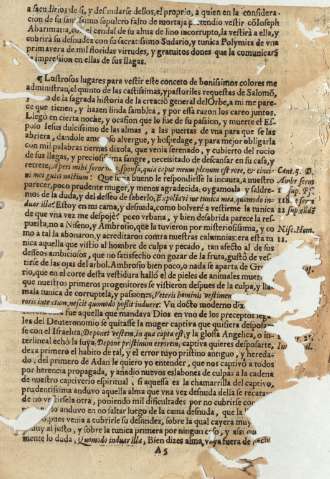 a sacudirlos de si, y desnudarse dellos, el proprio, a quien en la considera-
cion de su sepulcro falto de mortaja, atendio vestir có Ioseph
Abarimatia, con el cendal de su alma de lino incorrupto, la vestirà a ella, y
cubrirà su desnudez con su sacratissimo Sudario, y tunica Polymita de vna
primavera de mil floridas virtudes, y gratuitos dones que la comunicarà
la impression en ellas de sus llagas.
¶ Lustrosos lugares para vestir este conceto de bonissimos colores me
administran, el quinto de las castissimas, y pastoriles requestas de Salomó,
de la sagrada historia de la creació general del Orbe, a mi me pare-
ce que tienen, y hazen linda samblea, y por esta razon los careo juntos.
Llegò en cierta noche, y ocasion que le fue de passion, y muerte el Es-
poso Iesus dulcissimo de las almas, a las puertas de vna para que se las
abriera, dandole amoroso alvergue, y hospedage, y para mejor obligarla
con mil palabras tiernas dixola, que venia serenado, y cubierto del rocio
de sus llagas, y preciosissima sangre, necessitado de descansar en su casa, y
recrete, Sponsa, quia caput meum plenum est rore, & cincin-
ni mei guttis noctium: Que fuera bueno le respondiesse la incauta, a nuestro
parecer, poco prudente muger, y menos agradecida, oygamosla, y saldre-
mos de la duda, y del desseo de saberlo, Expoliavi me tunica mea, quomodo in-
duar illa? Estoy en mi cama, y desnuda, como bolverè a vestirme la tunica
de que vna vez me despojè? poco vrbana, y bien desabrida parece la res-
puesta, no a Niseno, y Ambrosio, que la tuvieron por misteriosissima, y co-
mo a tal la abonaron, y acreditaron contra nuestras calumnias: era esta tu
nica aquella que vistio al hombre de culpa y pecado, tan afecto al de sus
desseos ambiciosos, que no satisfecho con gozar de la fruta, gustò de ves-
tirse de las ojas del arbol. Ambrosio bien poco, o nada se aparta de Gre-
rio, que en el corte desta vestidura hallò el de pieles de animales muertos
que nuestros primeros progenitores se vistieron despues de culpados, y lla
mala tunica de corruptela, y passiones, Veteris hominis vestimen
ruptelis intectum, nescit quomodo possit induere: Vn docto moderno
fue aquella que mandava Dios en vno de los preceptos
res del Deuteronomio se quitasse la muger captiva que quisiera despo
se con el Israelita: Deponet vestem in qua capta est, y la glosa Angelica, o
terlineal echò la suya, Deponet pristinum errorem, captiva quieres desposarte,
dexa primero el habito de tal, y el error tuyo pristino antiguo, y hereda-
do, del primero de Adan le quiero yo entender, que nos captivò a todos
por herencia propagada, y añadio nuevos eslabones de culpas a la cadena
de nuestro captiverio espiritual, si aquessa es la chamarrilla del captivo,
prudentissima anduvo aquella alma que vna vez desnuda della se recata
de no vestirsela otra, poniendo mil dificultades por no cubrirse
anduvo en no saltar luego de la cama desnuda, que la
pues venia a cubrirse su desnudez, sobre la qual cayera muy
muy al justo, y sobre la tunica primera por ningun caso, y assi
mente lo duda, Quomodo induar illa, Bien dizes alma, ya fuera de
A5
Cant. 5. D.